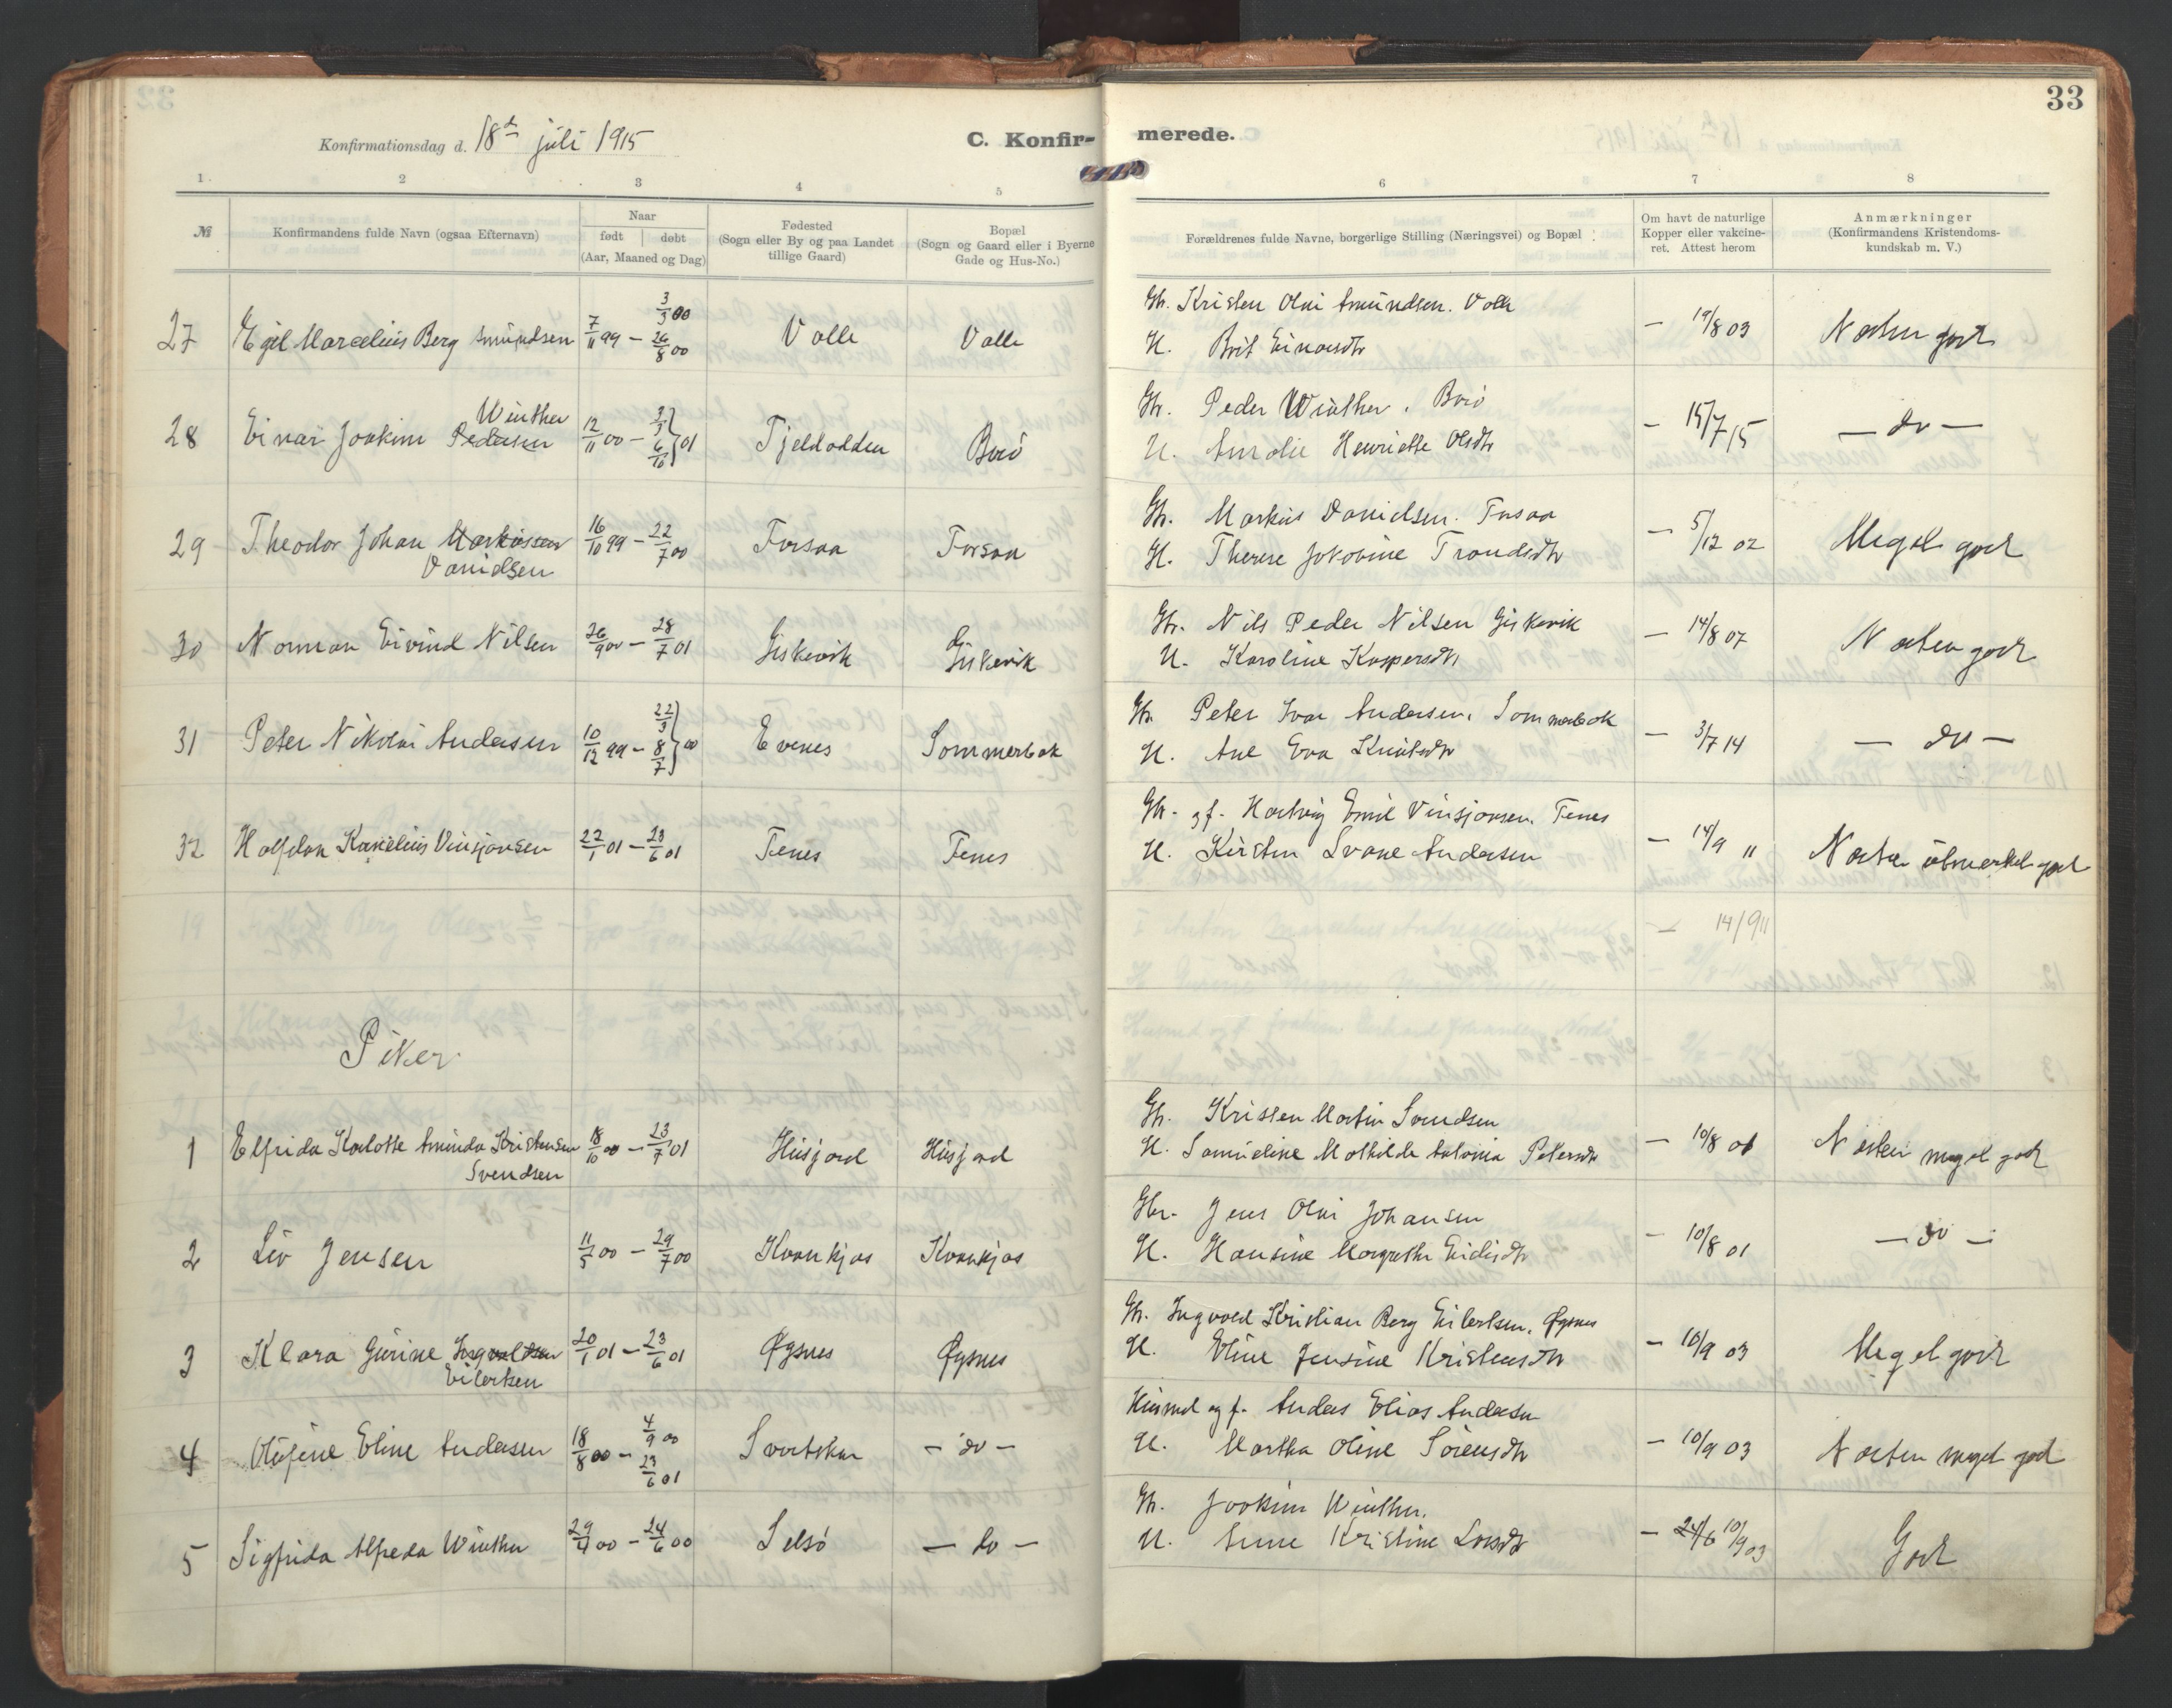 33
Konfirmationsdag d. 18d juli 1915
C. Konfir- merede.
1 2 3 4 5 6 7 8
№
Konfirmandens fulde Navn (ogsaa Efternavn)
Naar
født døbt
(Aar, Maaned og Dag)
Fødested
(Sogn eller By og paa Landet
tillige Gaard)
Bopæl
(Sogn og Gaard eller i Byerne
Gade og Hus-No.)
Forældrenes fulde Navne, borgerlige Stilling (Næringsvei) og Bopæl
Om havt de naturlige
Kopper eller vakcine-
ret. Attest herom
Anmærkninger
(Konfirmandens Kristendoms-
kundskab m. V.)
27 Egil Marcelius Berg Amundsen 7/11 99 – 3/3 00 26/8 00 Valle Valle
Gbr. Kristen Olai Amundsen. Valle
H. Brit Einarsdtr – 19/8 03 Næsten godt
28 Einar Joakim Pedersen Winther 12/11 00 – 3/3 6/10 } 01 Tjeldodden Barø
Gbr. Peder Winther. Barø
H. Amalie Henriette Olsdtr – 15/7 15 — do —
29 Theodor Johan Markussen 16/10 99 – 22/7 00 Forsaa Forsaa
Danielsen
Gbr. Markus Danielsen. Forsaa
H. Therese Jakobine Trondsdtr – 5/12 02 Meget godt
30 Norman Eivind Nilsen 26/9 00 – 28/7 01 Giskevik Giskevik
Gbr. Nils Peder Nilsen Giskevik
H. Karoline Kaspersdtr – 14/8 07 Næsten godt
31 Peter Nikolai Andersen 10/12 99 – 22/3 8/7 } 00 Evenes Sommerbak
Gbr. Peter Ivar Andersen, Sommerbak
H. Ane Eva Knutsdtr – 3/7 14 — do —
32 Halfdan Kornelius Vinsjansen 22/1 01 – 23/6 01 Tenes Tenes
Gbr. og f. Hartvig Emil Vinsjansen. Tenes
H. Kirsten Svane Andersen – 14/9 11 Næsten utmerket godt
– 14/9 11
Piker
1 Elfrida Karlotte Aminda Kristensen 18/10 00 – 23/7 01 Husjord Husjord
Svendsen
Gbr. Kristen Martin Svendsen
H. Samueline Mathilde Antonia Petersdtr – 10/8 01 Næsten meget godt
2 Liv Jensen 11/5 00 – 29/7 00 Kvankjos Kvankjos
Gbr. Jens Olai Johansen
H. Hansine Margrethe Eidisdtr – 10/8 01 — do —
3 Klara Gurine Ingvaldsen 20/1 01 – 23/6 01 Øygsnes Øygsnes
Eilertsen
Gbr. Ingvald Kristian Berg Eilertsen, Øygsnes
H. Eline Jensine Kristensdtr – 10/9 03 Meget godt
4 Olufine Eline Andersen 18/8 00 – 4/9 00 23/6 01 Svartskar — do —
Husmd og f. Anders Elias Andersen
H. Martha Oline Sörensdtr – 10/9 03 Næsten meget god
5 Sigfrida Alfreda Winther 29/4 00 – 24/6 00 Selsö — do —
Gbr. Joakim Winther.
H. Anne Kristine Larsdtr – 24/6 10/9 03 Godt